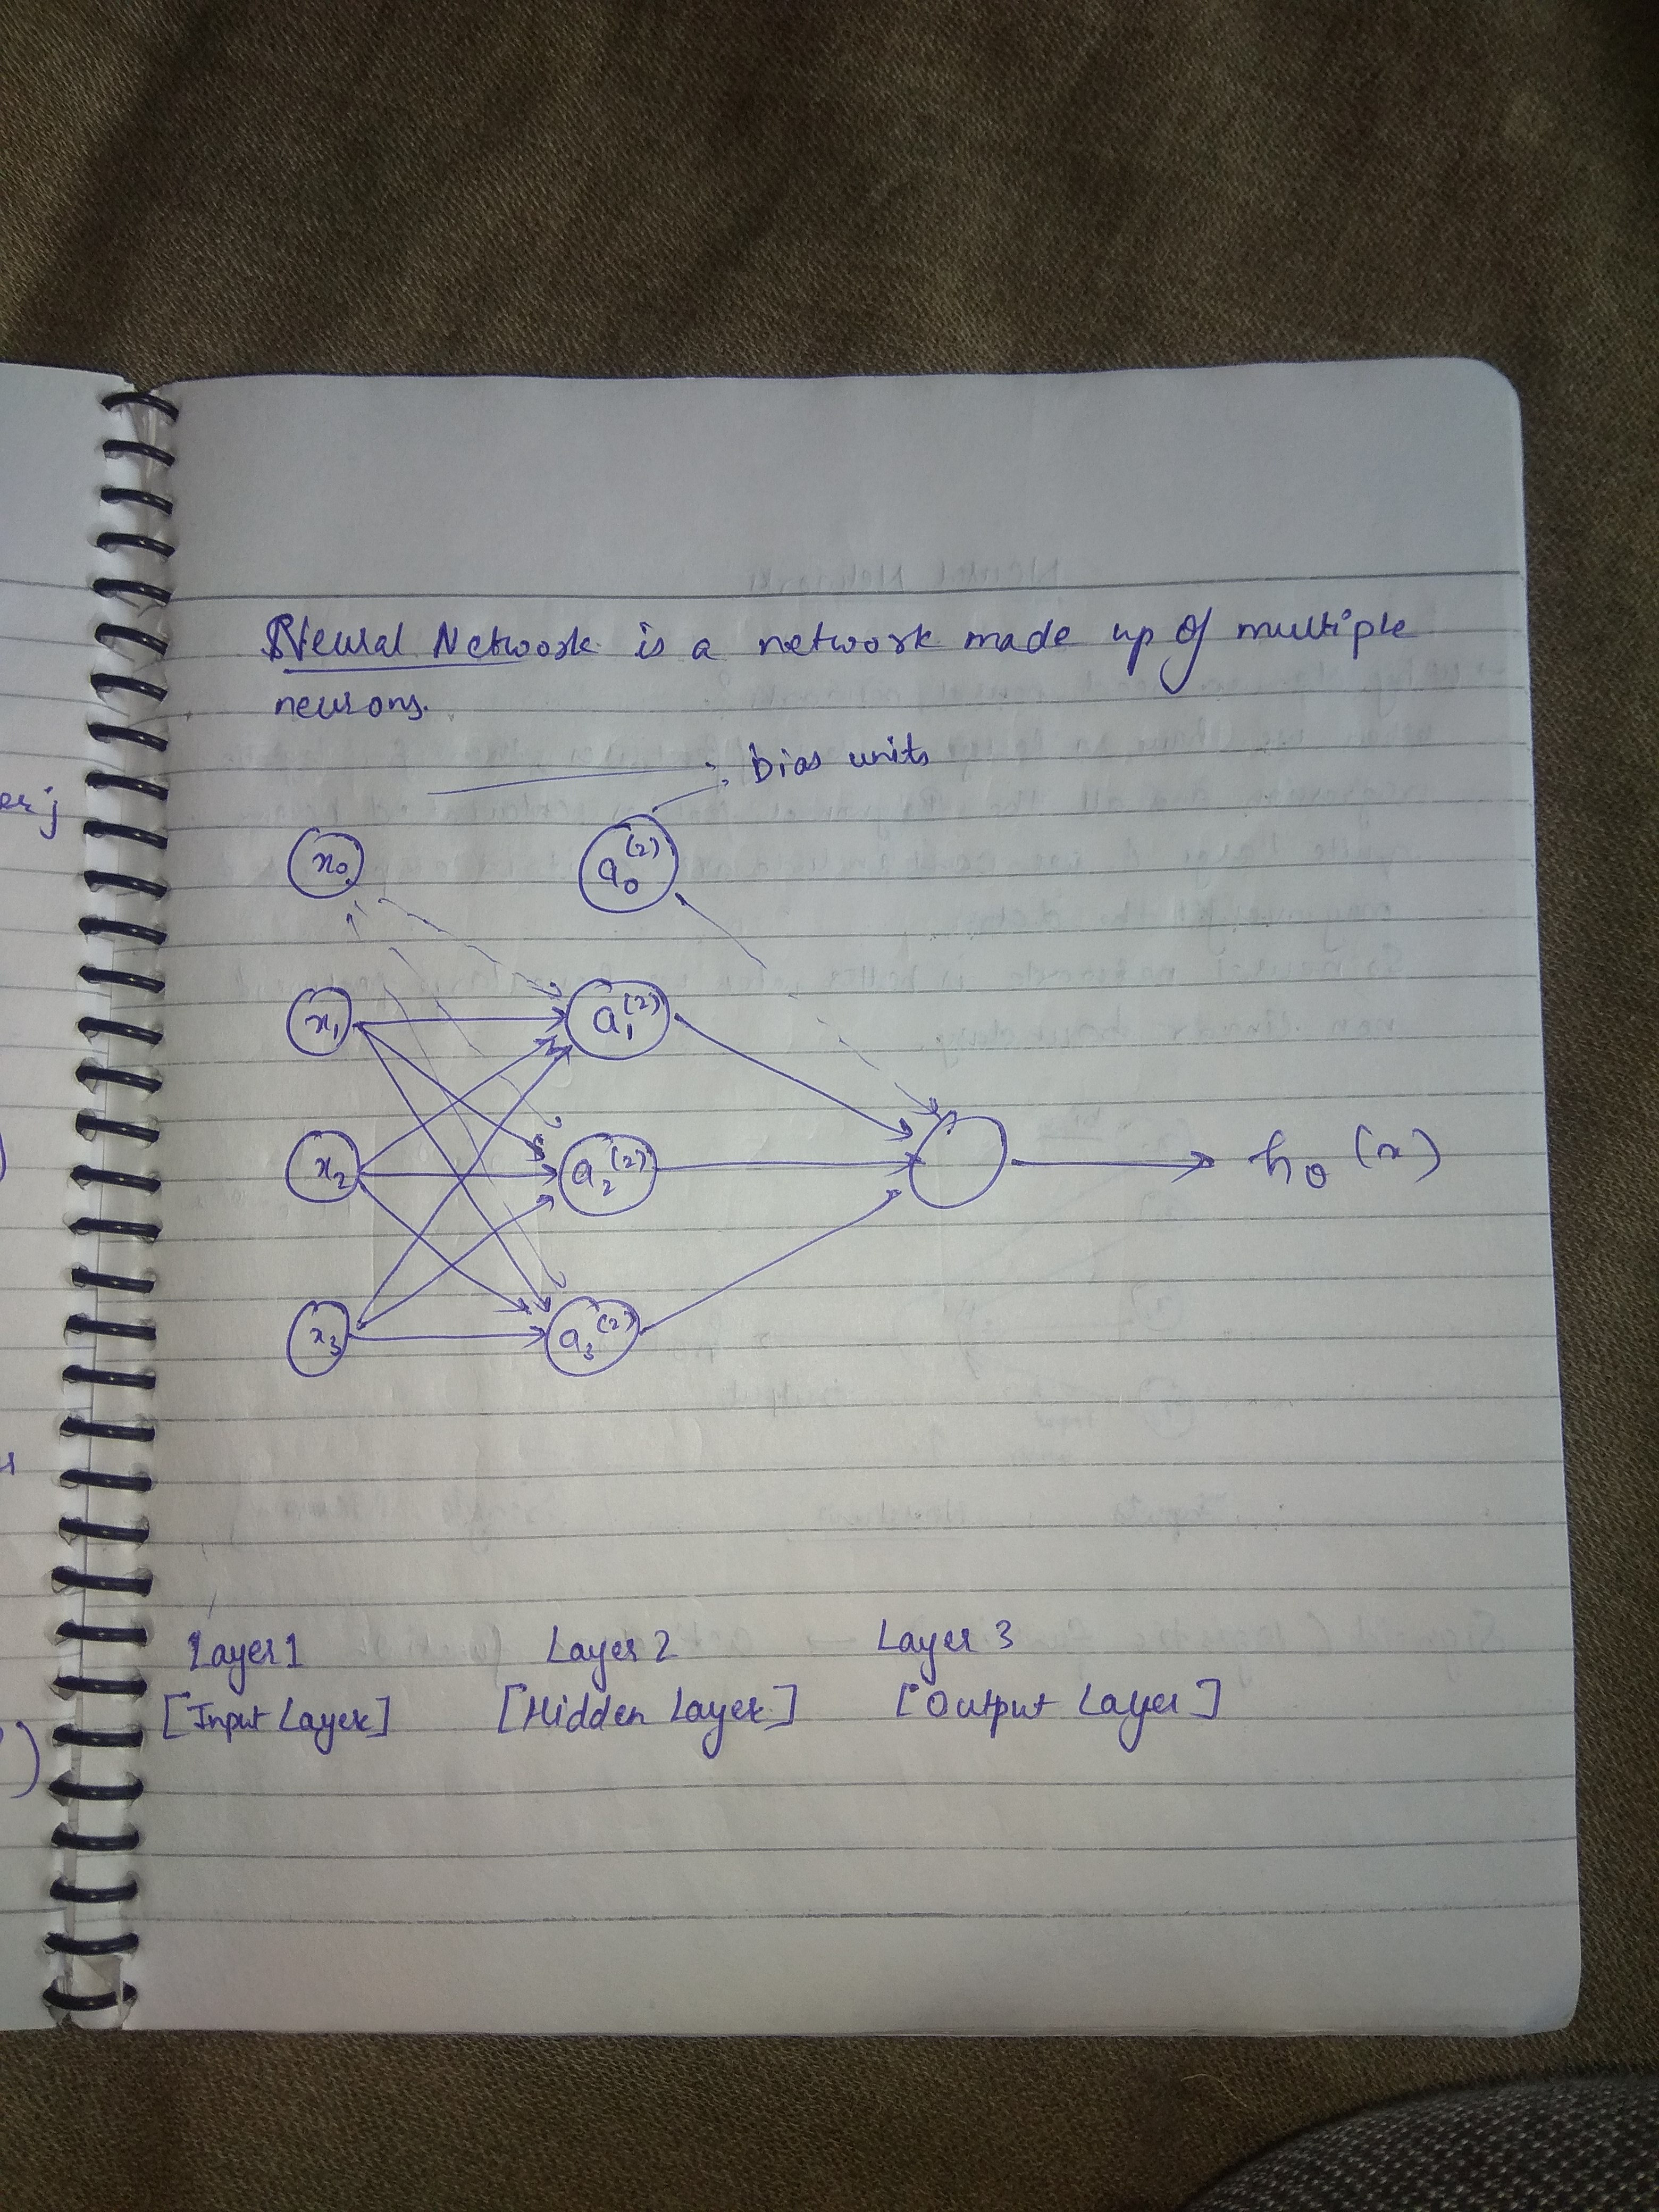 Neural Network is a network made up of multiple
neurons.
bias units
x₀ a₀⁽²⁾
x₁ a₁⁽²⁾
x₂ a₂⁽²⁾ hθ(x)
x₃ a₃⁽²⁾
Layer 1 Layer 2 Layer 3
[Input Layer] [Hidden Layer] [Output Layer]